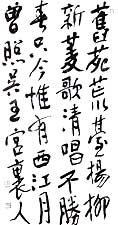 舊苑荒臺楊柳
新菱歌清唱不勝
春只今惟有西江月
曾照吳王宮裏人